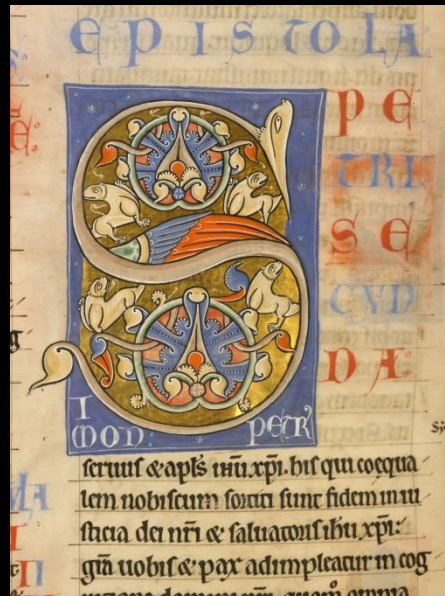 EPISTOLA
PE
TRI
SE
CVN
DA.
I
MON. PETR
seruus & apls ihu xpi. his qui coequa
lem nobiscum sortiti sunt fidem in iu
sticia dei nri & saluatoris ihu xpi.
gra uobis & pax adimpleatur in cog